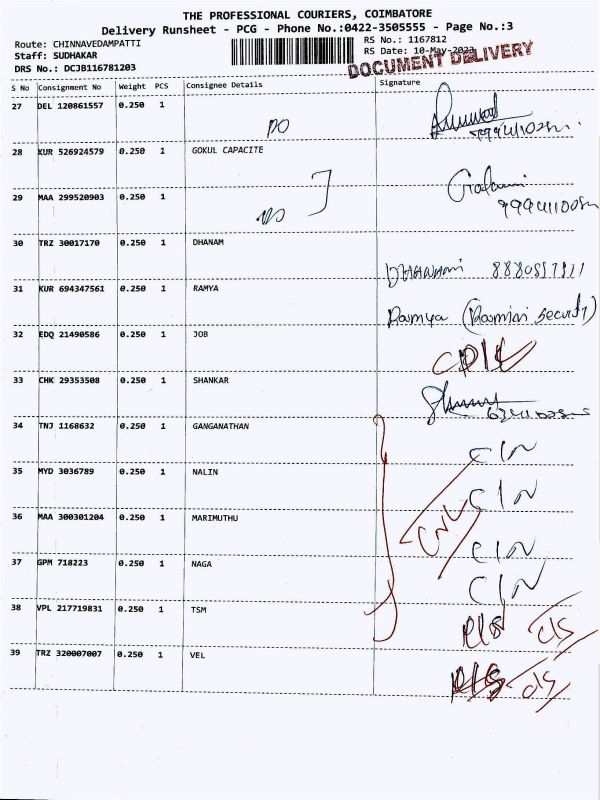 THE PROFESSIONAL COURIERS, COIMBATORE
Delivery Runsheet - PCG - Phone No.:0422-3505555 - Page No.:3
Route: CHINNAVEDAMPATTI
RS No.: 1167812
Staff: SUDHAKAR
RS Date: 10-May-2023
DRS No.: DCJB116781203
DOCUMENT DELIVERY
S No Consignment No Weight PCS Consignee Details Signature
27 DEL 120861557 0.250 1
28 KUR 526924579 0.250 1 GOKUL CAPACITE
29 MAA 299520903 0.250 1
30 TRZ 30017170 0.250 1 DHANAM
DHANAM
31 KUR 694347561 0.250 1 RAMYA
Ramya (
security)
32 EDQ 21490586 0.250 1 JOB
33 CHK 29353508 0.250 1 SHANKAR
34 TNJ 1168632 0.250 1 GANGANATHAN
CIN
35 MYD 3036789 0.250 1 NALIN
CIN
36 MAA 300301204 0.250 1 MARIMUTHU
CIN
37 GPM 718223 0.250 1 NAGA
CIN
38 VPL 217719831 0.250 1 TSM
39 TRZ 320007007 0.250 1 VEL